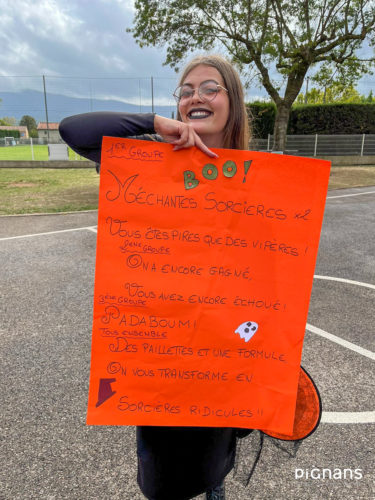 1ER GROUPE
BOO!
MÉCHANTES SORCIERES x2
VOUS ÊTES PIRES QUE DES VIPÈRES !
2ÈME GROUPE
ON A ENCORE GAGNÉ,
VOUS AVEZ ENCORE ÉCHOUÉ !
3ÈME GROUPE
PADABOUM !
TOUS ENSEMBLE
DES PAILLETTES ET UNE FORMULE
ON VOUS TRANSFORME EN
SORCIERES RIDICULES !!
pignans